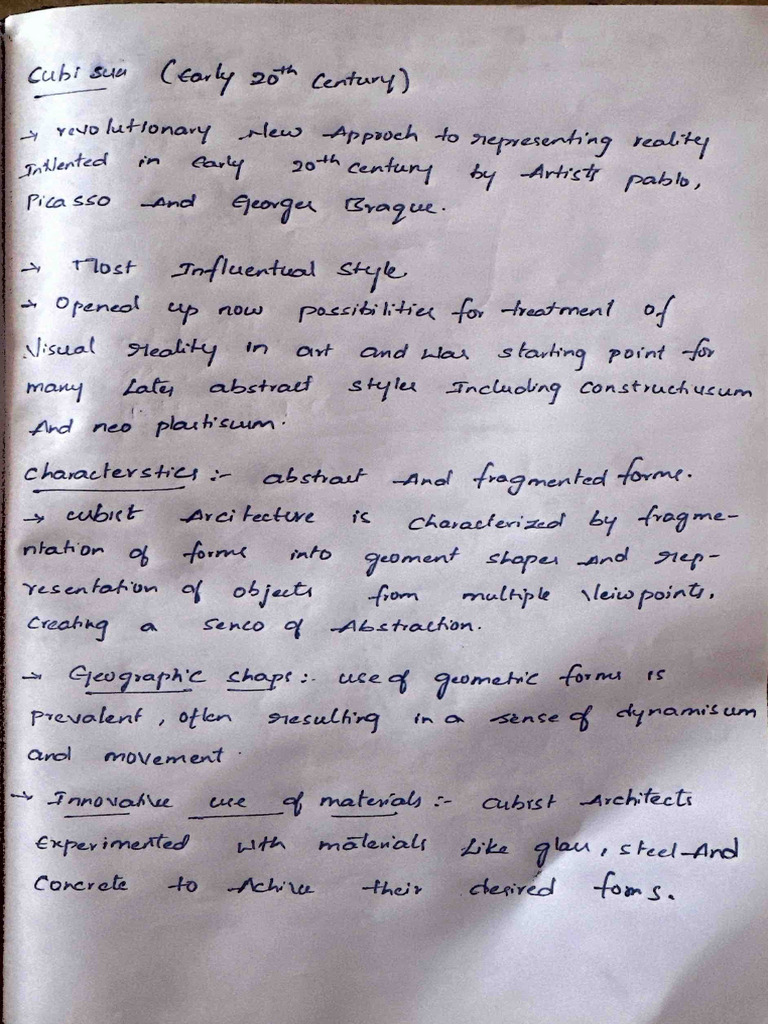 Cubisum (Early 20th Century)
→ revolutionary New Approch to representing reality
Invented in Early 20th century by Artists pablo,
Picasso And Georges Braque.
→ Most Influentual Style
→ Opened up now possibilities for treatment of
Visual reality in art and was starting point for
many Later abstract styles Including constructivisum
And neo plastisum.
Characterstics :- abstract And fragmented forms.
→ cubist Arcitecture is characterized by fragme-
ntation of forms into geoment shapes And rep-
resentation of objects from multiple Veiw points,
Creating a sence of Abstraction.
→ Geographic shaps :- use of geometric forms is
Prevalent, often resulting in a sense of dynamisum
and movement.
→ Innovative use of materials :- cubist Architects
Experimented with materials Like glass, steel And
Concrete to Achive their desired foms.